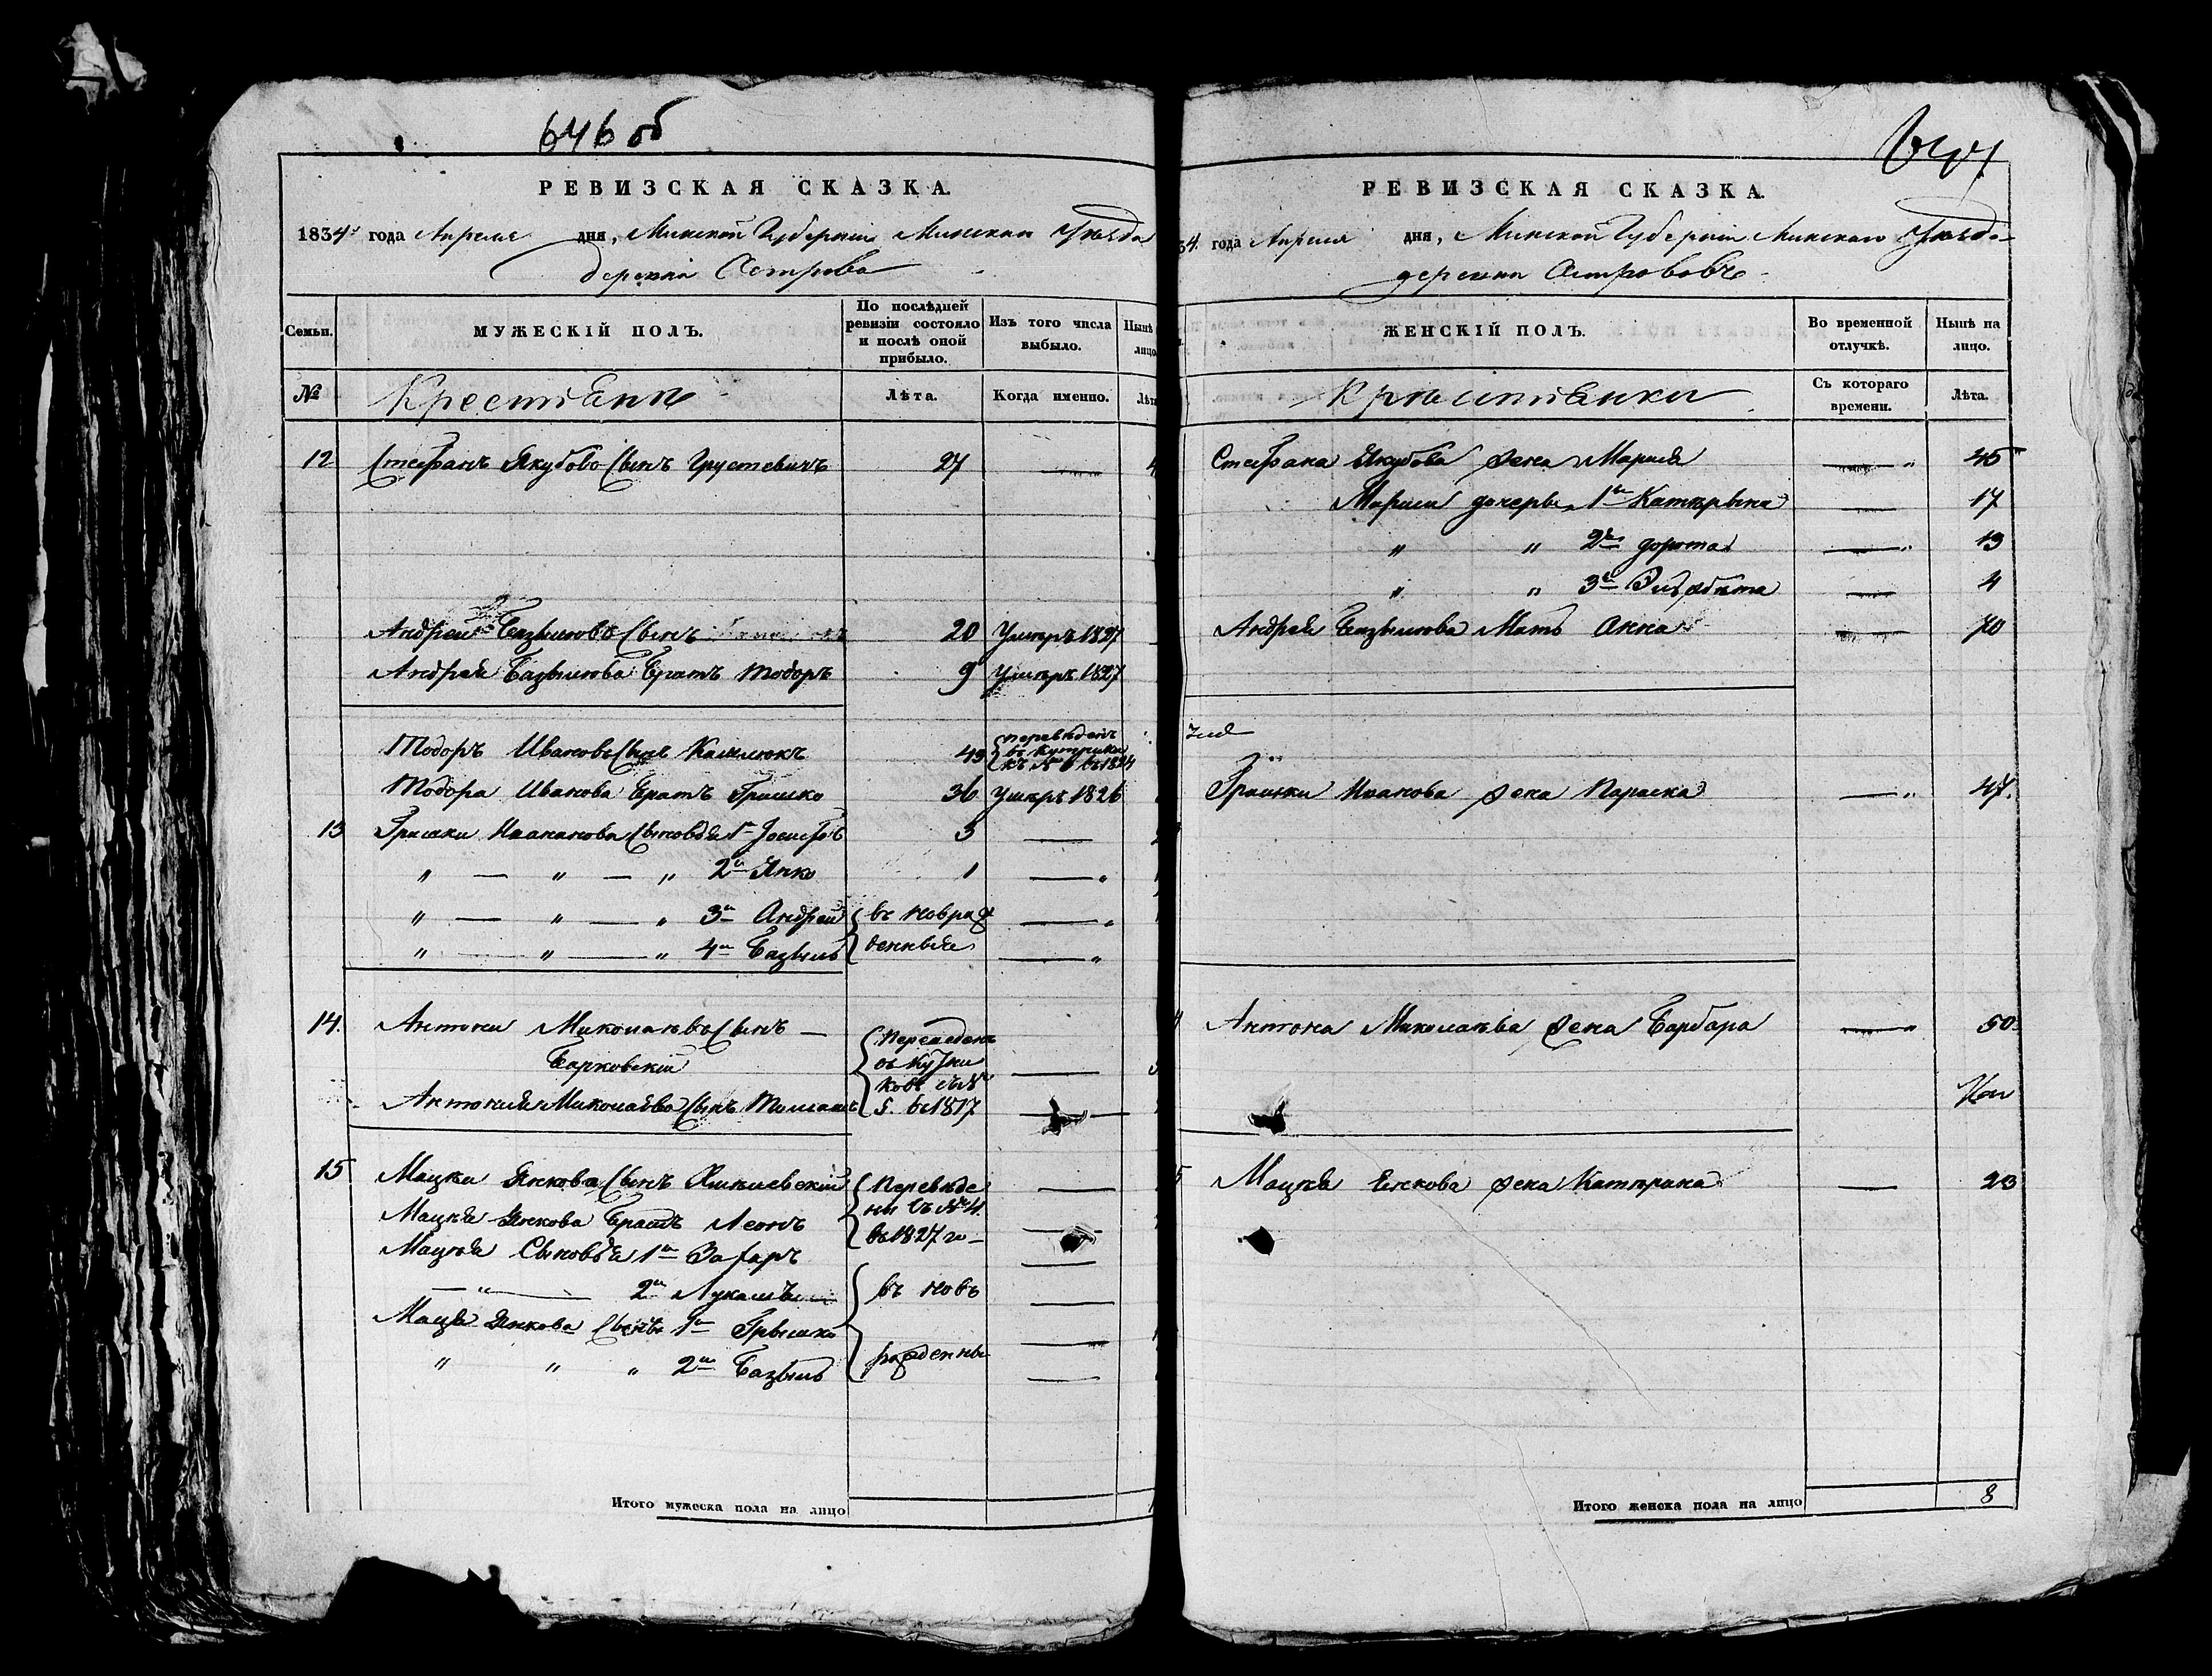 646 об
РЕВИЗСКАЯ СКАЗКА.
1834 года Апреля дня, Минской Губернии Минскаго Уезда
деревни Острова
Семьи.
МУЖЕСКІЙ ПОЛЪ.
По послѣдней ревизіи состояло и послѣ оной прибыло.
Изъ того числа выбыло.
Нынѣ
лицо
№
Крестьяне
Лѣта.
Когда именно.
Лѣта
12 Стефанъ Якубовъ Сынъ 27
Андрей Базылювъ Сынъ 20 Умеръ 1827
Андрея Базылюва Братъ Тодоръ 9 Умеръ 1827
Тодоръ Ивановъ Сынъ 49 переведенъ
въ
къ № 6 въ 1834
Тодора Иванова Братъ Гришко 36 Умеръ 1826
13 Гришки Сыновья 1й Іосифъ 3
" — " — " 2й Янко 1
" — " — " 3й Андрей въ Новраж
" — " — " 4й Базыль денныя
14. Антони Миколаевъ Сынъ — Переведенъ
Барковскій
Антонія Миколаева Сынъ 5. въ 1817
15 Мацка Янкова Сынъ Переведе
Мацкя Янкова Братъ Леонъ ни съ № 4.
въ 1827 го
Мацкя Сыновья 1й Захаръ
— " — 2й Лукашъ въ новъ
Янкова Сынъ 1й Грышко
" " " 2й Базыль рожденны
Итого мужеска пола на лицо
647
РЕВИЗСКАЯ СКАЗКА.
34. года Апреля дня, Минской Губерніи Минскаго Уезда
деревни Островъ
ЖЕНСКІЙ ПОЛЪ.
Во временной отлучкѣ.
Нынѣ на лицо.
Крестьянки
Съ котораго времени.
Лѣта.
Стефана Якубова жена Марія 45
Маріи дочеры 1я Катерына 17
" " 2я Дорота 13
" " 3я Эльжбета 4
Андрея Базылюва Мать Анна 70
Гришки Иванова жена Параска 47.
Антона Миколаева жена Барбара 50
Мацкя Янкова жена Катерина 23
Итого женска пола на лицо 8